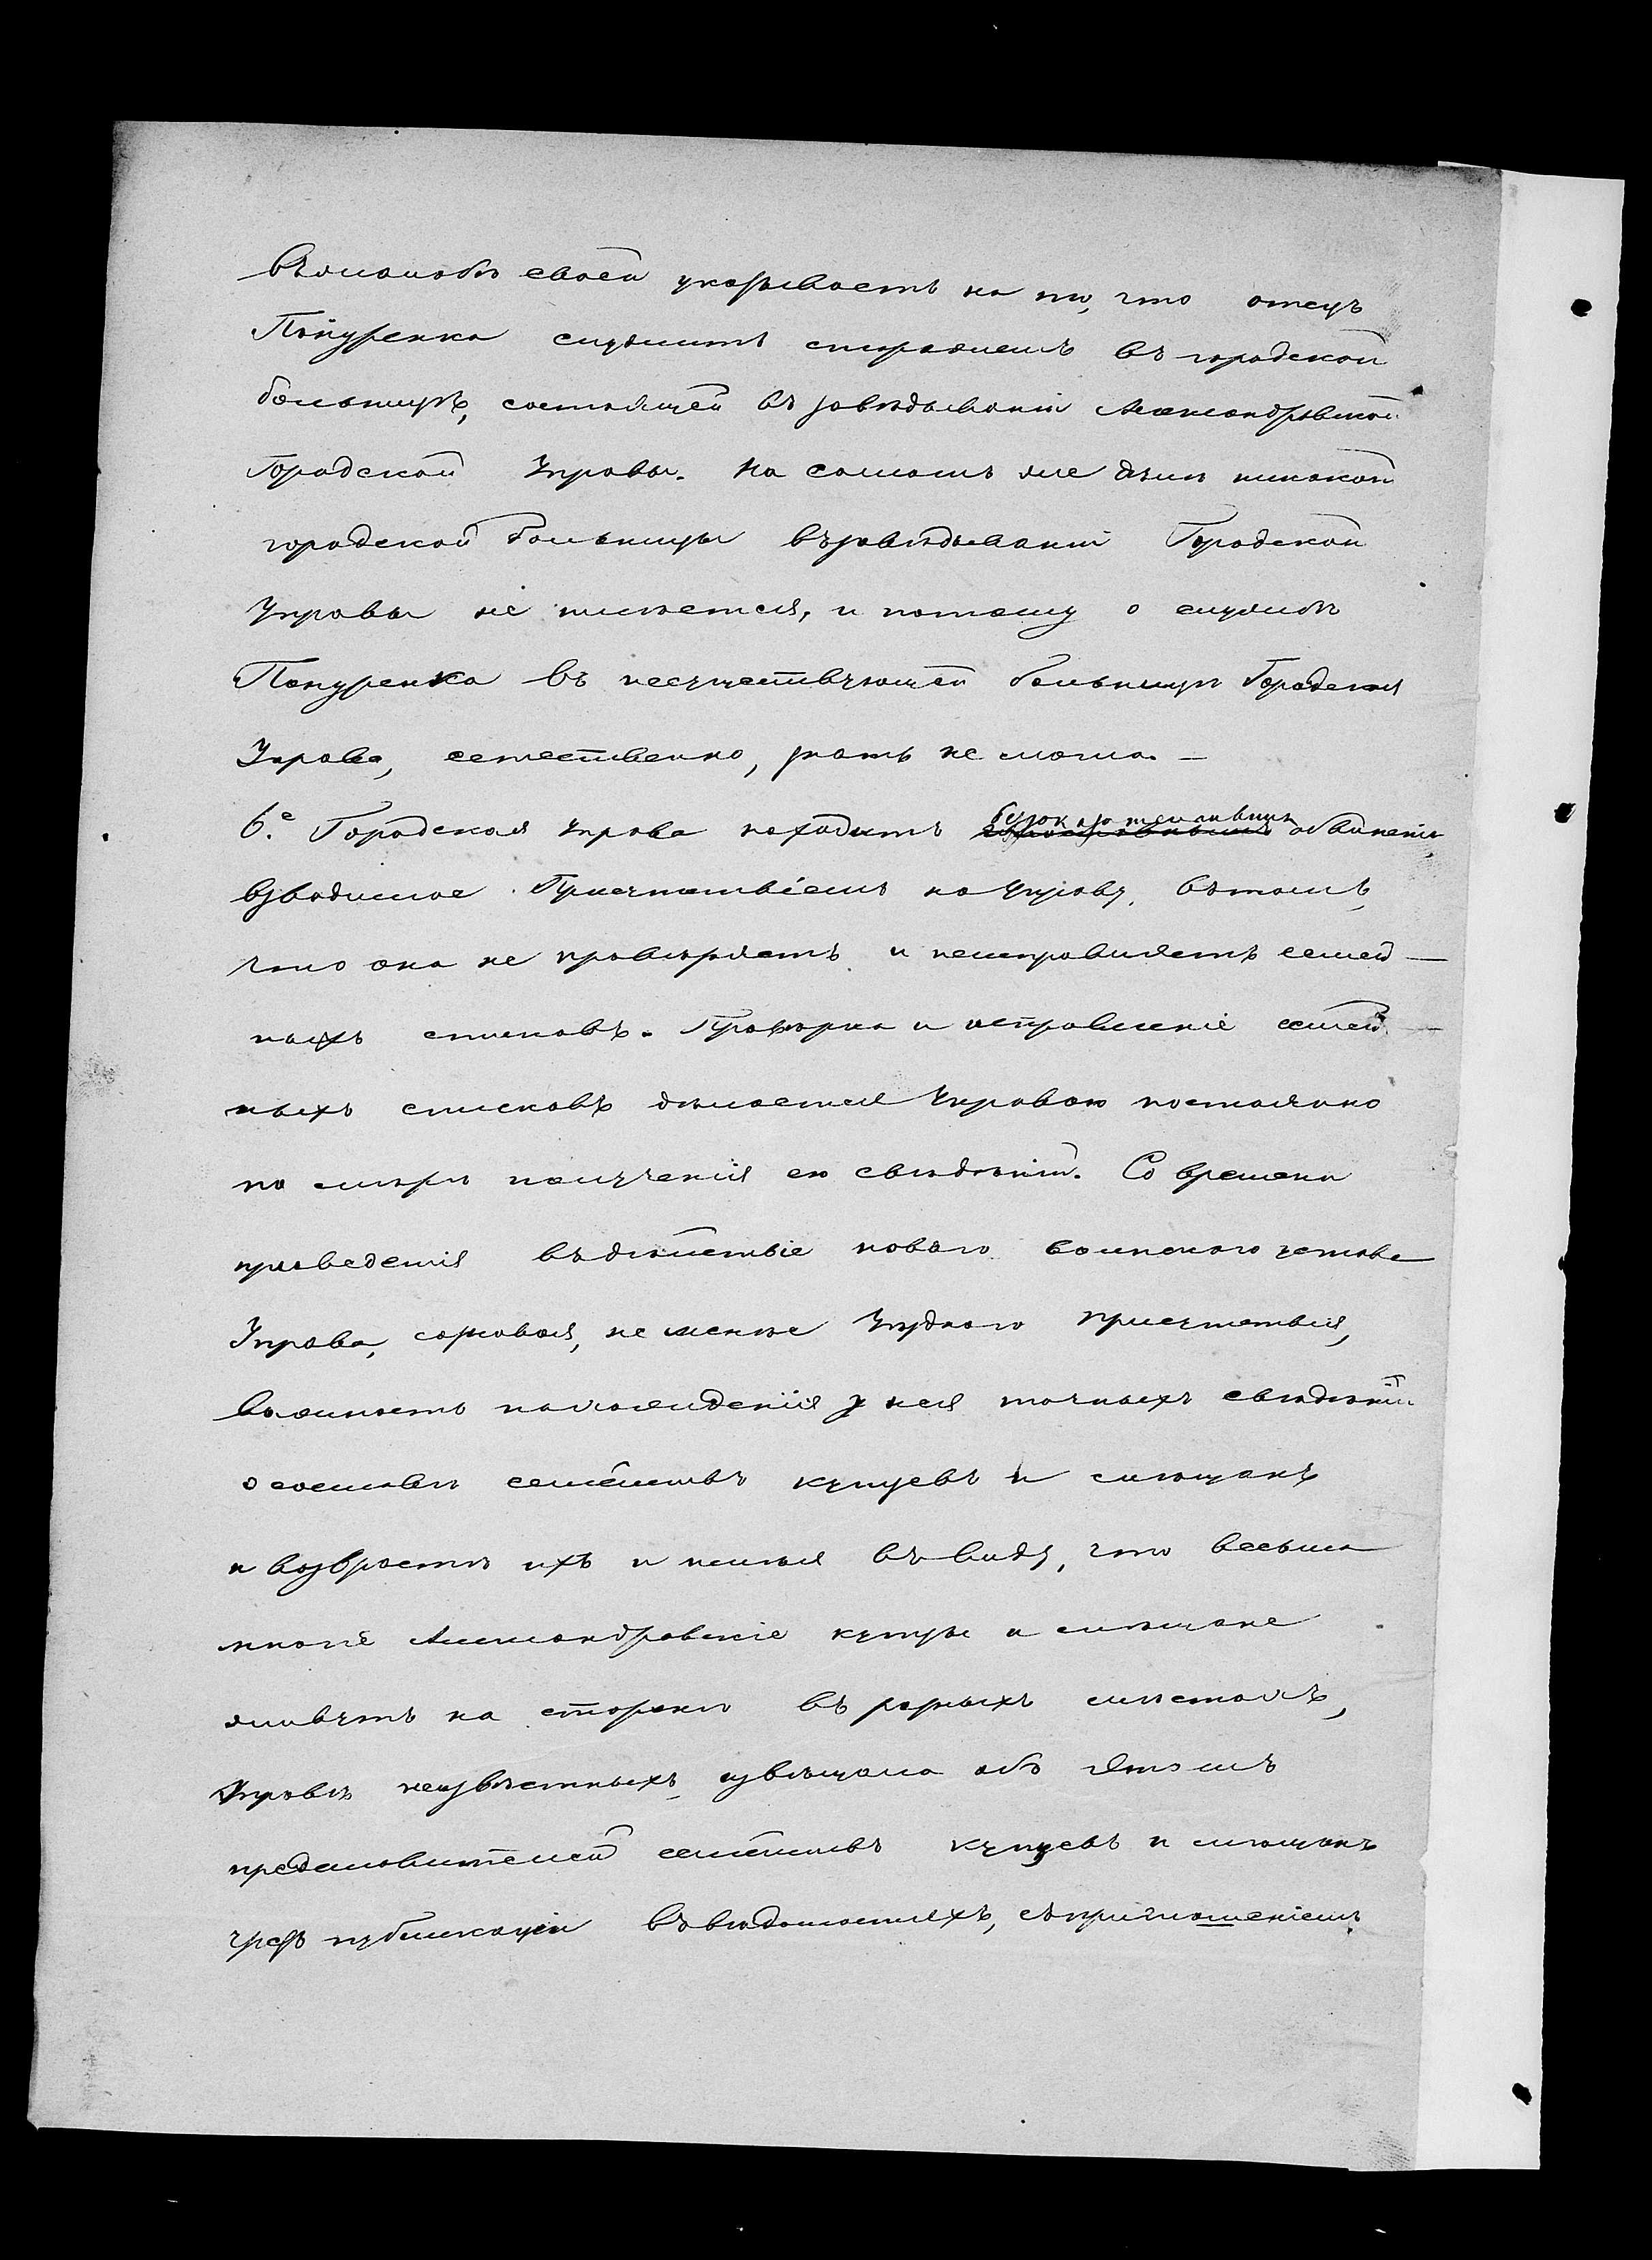 въ жалобѣ своей указываетъ на то, что отецъ
Попуренка служитъ сторожемъ въ городской
больницѣ, состоящей въ завѣдываніи Александровской
Городской Управы. На самомъ же дѣлѣ никакой
городской больницы въ завѣдываніи Городской
Управы не имѣется, и потому о службѣ
Попуренка въ несуществующей больницѣ Городская
Управа, естественно, знать не могла. —
6.е Городская Управа находитъ безоснователь обвиненіе
взводимое Присутствіемъ на Управу, въ томъ,
что она не провѣряетъ и неисправляетъ семей—
ныхъ списковъ. Провѣрка и исправленіе семей—
ныхъ списковъ дѣлается Управою постоянно
по мѣрѣ полученія ею свѣдѣній. Со времени
приведенія въ дѣйствіе новаго воинскаго устава
Управа, сознавая, не менѣе Уѣзднаго Присутствія,
важность нахожденія у нея точныхъ свѣдѣній
о составѣ семействъ купцевъ и мѣщанъ
и возврастѣ ихъ и имѣя въ виду, что весьма
многіе Александровскіе купцы и мѣщане
живутъ на сторонѣ въ разныхъ мѣстахъ,
Управѣ неизвѣстныхъ, извѣщала объ этомъ
представителей семействъ купцевъ и мѣщанъ
чрезъ публикаціи въ вѣдомостяхъ, съ приглашеніемъ